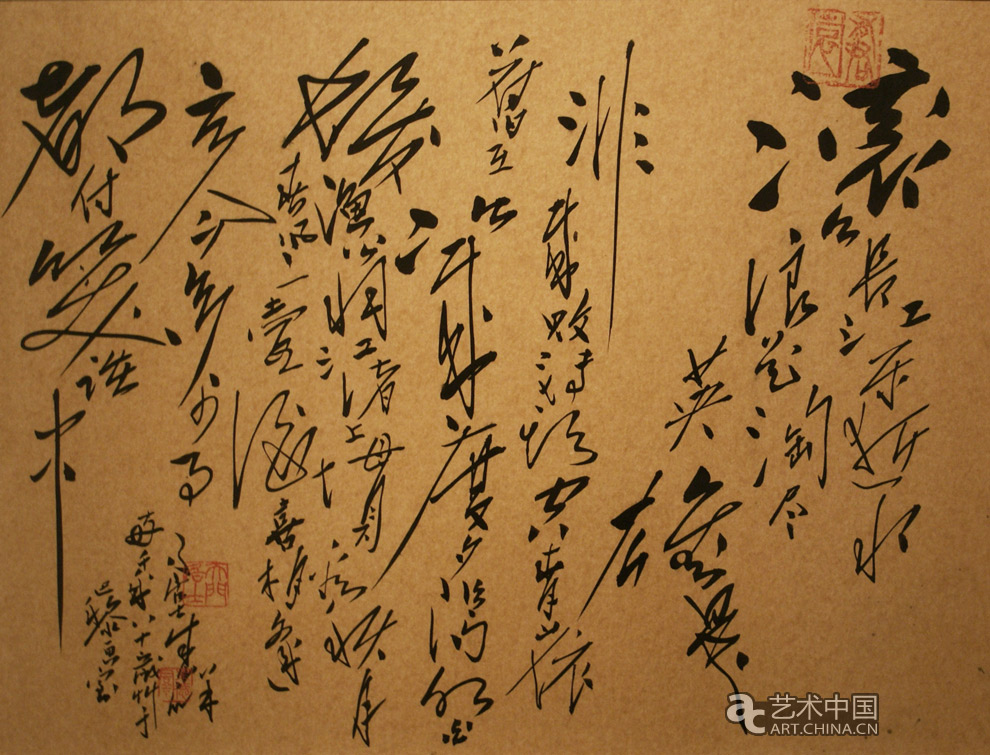 滚滚長江东逝水
浪花淘尽
英雄是
非成敗转頭空青山依
舊在几度夕阳红
白髮渔
江渚上惯看秋月
春风一壶酒喜相逢
古今多少事
都付笑谈中
八十歲
艺术中国
ART.CHINA.CN